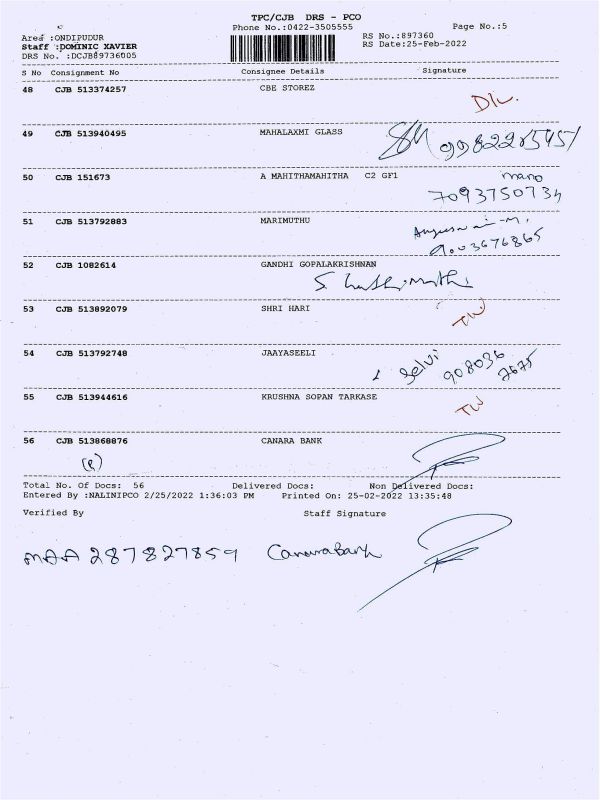 TPC/CJB DRS - PCO
Phone No.:0422-3505555
Page No.:5
Area :ONDIPUDUR
RS No.:897360
Staff :DOMINIC XAVIER
RS Date:25-Feb-2022
DRS No. :DCJB89736005
S No Consignment No Consignee Details Signature
48 CJB 513374257 CBE STOREZ
49 CJB 513940495 MAHALAXMI GLASS
50 CJB 151673 A MAHITHAMAHITHA C2 GF1 mano
7093750734
51 CJB 513792883 MARIMUTHU
9003676865
52 CJB 1082614 GANDHI GOPALAKRISHNAN
53 CJB 513892079 SHRI HARI TW
54 CJB 513792748 JAAYASEELI Selvi 908036 7675
55 CJB 513944616 KRUSHNA SOPAN TARKASE TW
56 CJB 513868876 CANARA BANK
Total No. Of Docs: 56 Delivered Docs: Non Delivered Docs:
Entered By :NALINIPCO 2/25/2022 1:36:03 PM Printed On: 25-02-2022 13:35:48
Verified By Staff Signature
MAA 287827859 Canara Bank